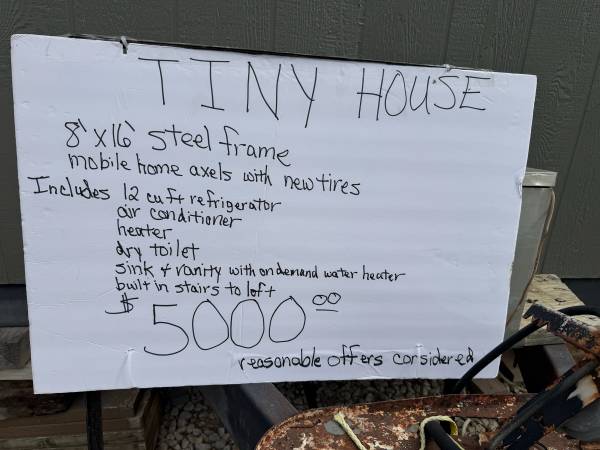 TINY HOUSE
8'x16' steel frame
mobile home axels with new tires
Includes 12 cu ft refrigerator
air conditioner
heater
dry toilet
sink & vanity with on demand water heater
built in stairs to loft
$5000⁰⁰
reasonable offers considered